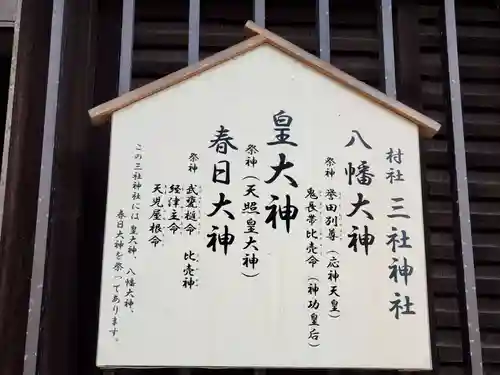 村社 三社神社
八幡大神
祭神 誉田別尊(応神天皇)
鬼長帯比売命(神功皇后)
皇大神
祭神(天照皇大神)
春日大神
祭神 武甕槌命 比売神
経津主命
天児屋根命
この三社神社には皇大神、八幡大神、
春日大神を祭ってあります。